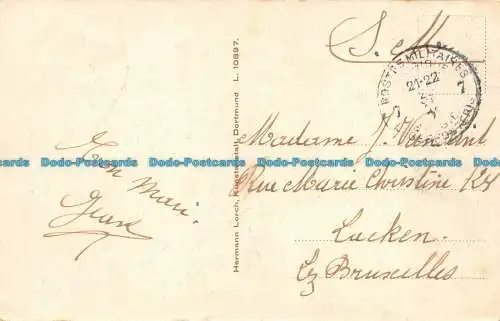 S. M.
POSTES MILITAIRES
21-22
7 7
Ton Mari.
Jean
Hermann Lorch, Kunstanstalt, Dortmund L. 10897.
Madame J.
Rue Marie Christine 124
Laeken
Lz Bruxelles
Dodo-Postcards Dodo-Postcards Dodo-Postcards Dodo-Postcards Dodo-Postcards